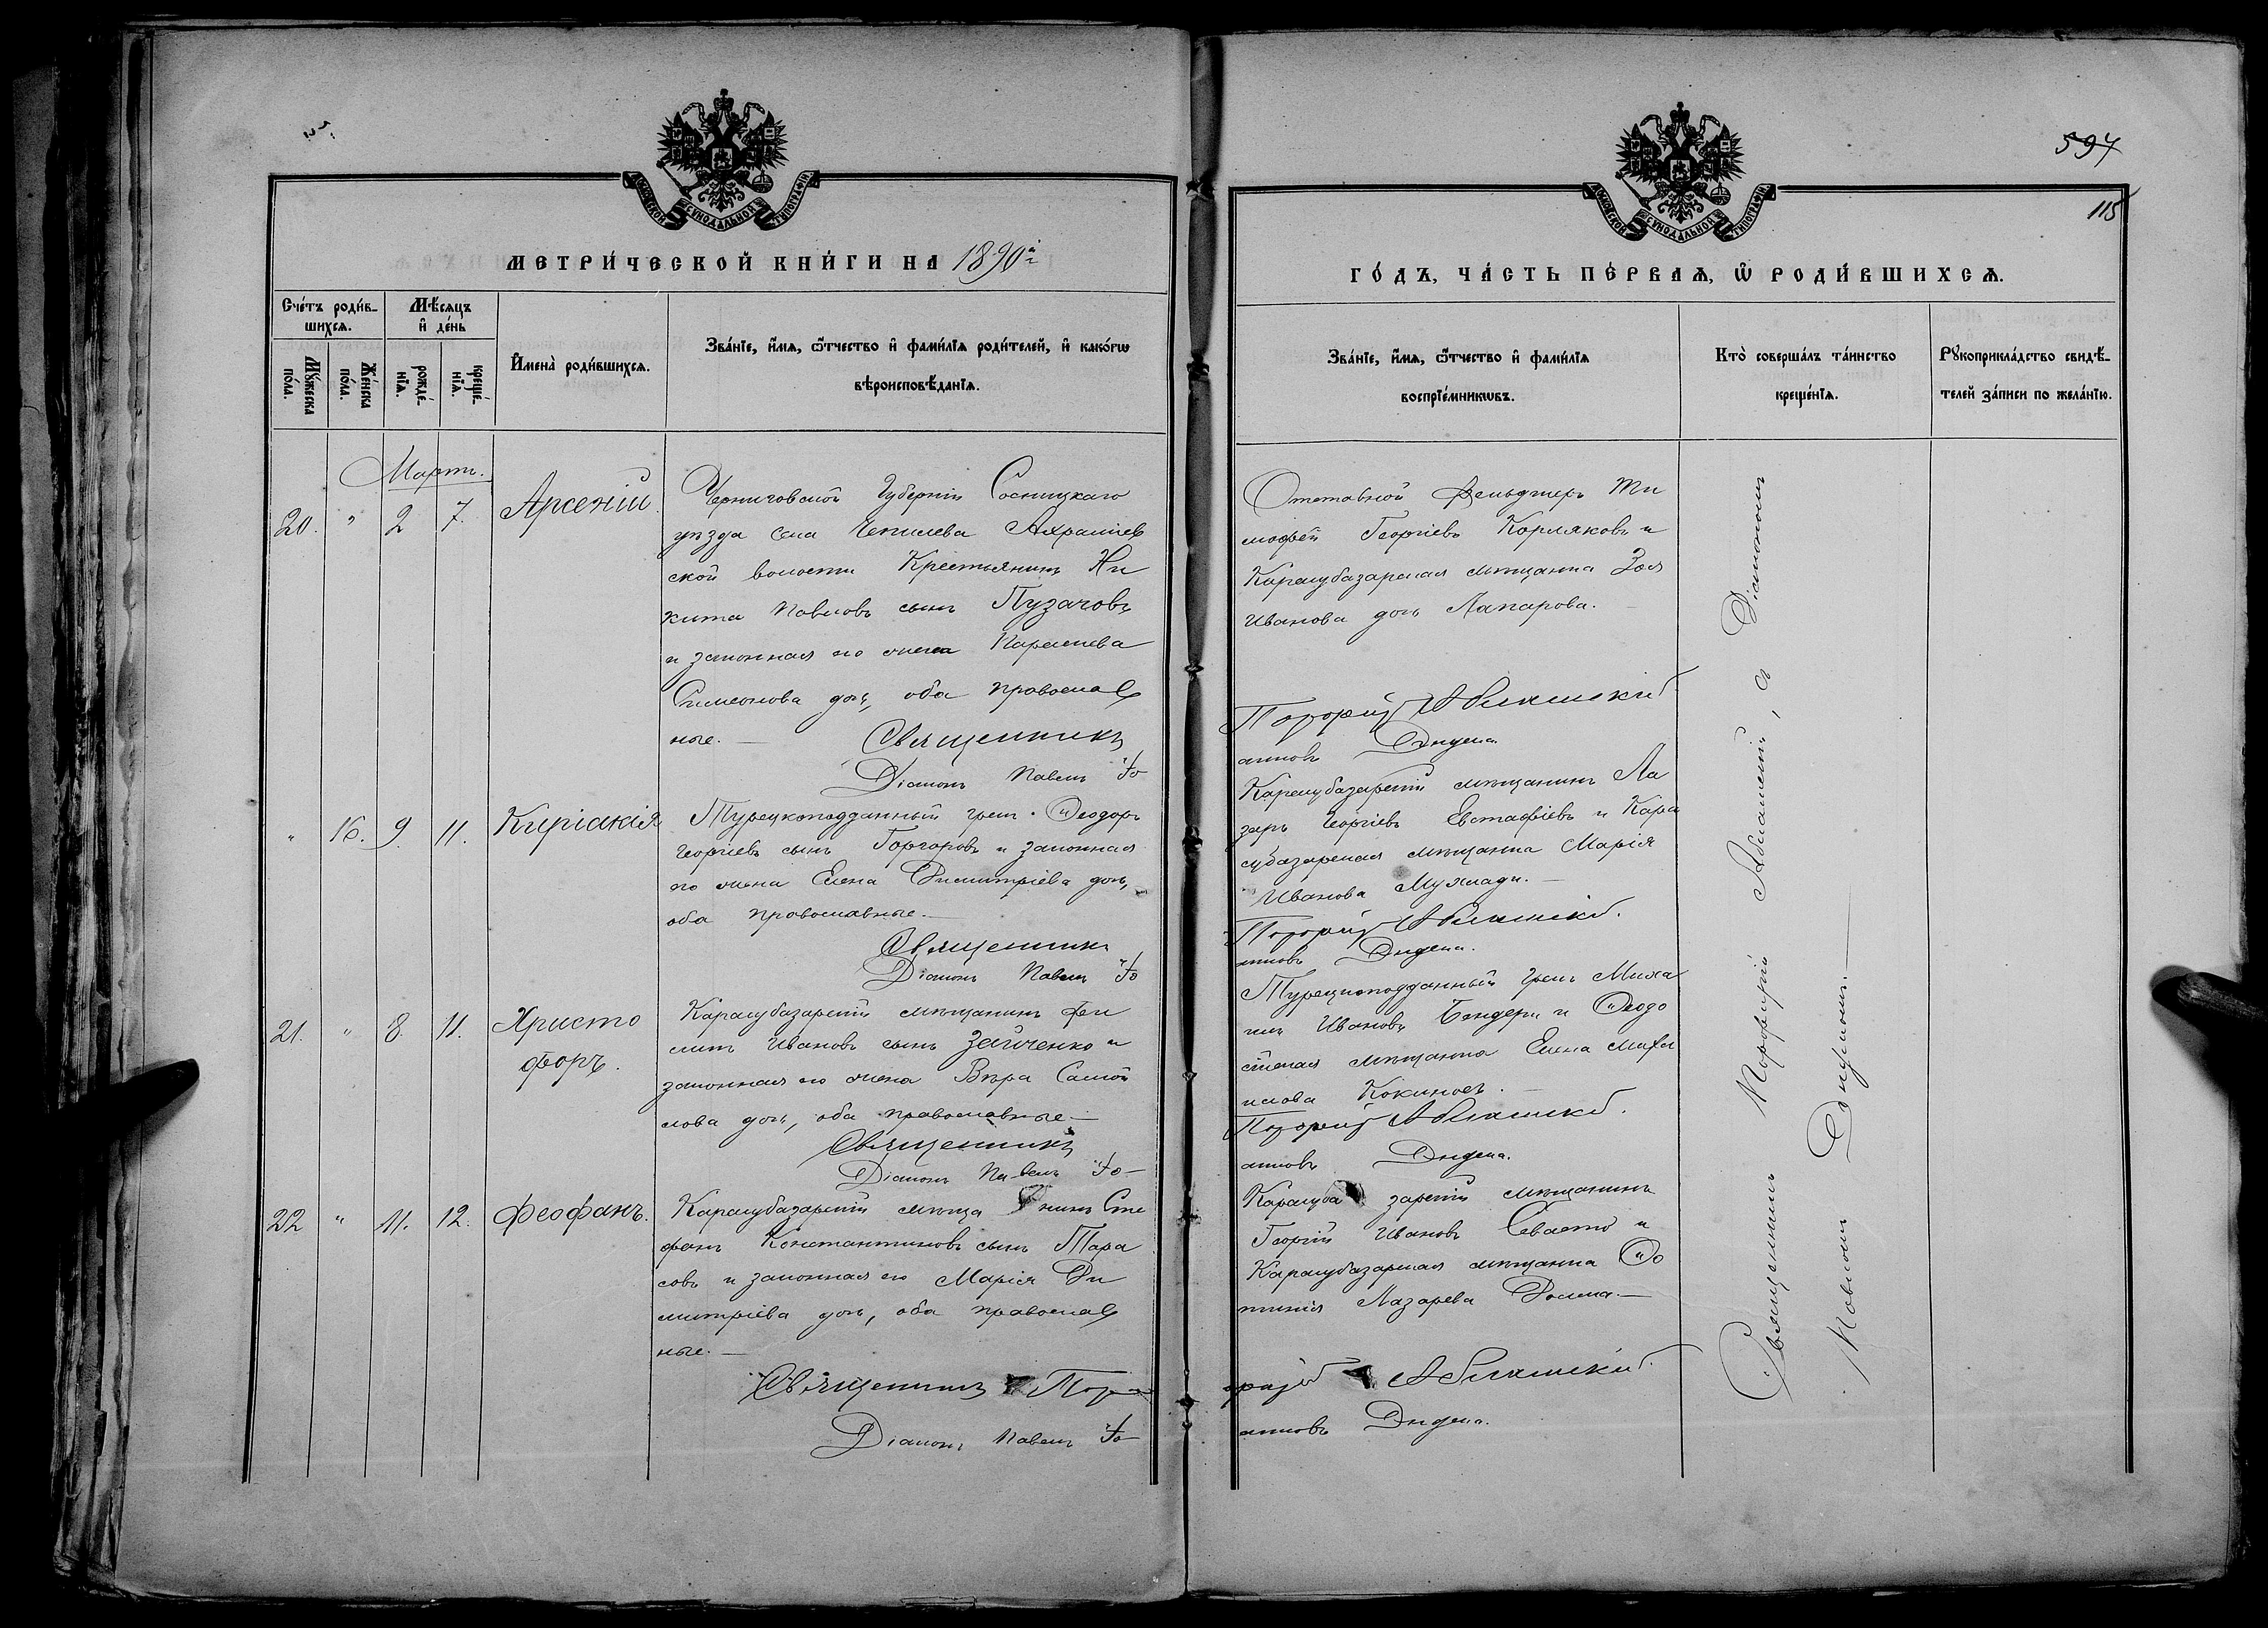 МОСКОВСКОЙ СѴНОДАЛЬНОЙ ТИПОГРАФІИ
МЕТРИ́ЧЕСКОЙ КНИ́ГИ НА 1890й
Сче́тъ роди́в-
шихся.
Мѣ́сяцъ
и҆ де́нь
Мꙋ́жеска
по́ла.
Же́нска
по́ла.
рожде́-
нїѧ.
креще́-
нїѧ.
И҆мена̀ роди́вшихсѧ.
Зва́нїе, и҆́мѧ, ѻ҆́тчество и҆ фами́лїѧ роди́телей, и҆ како́гѡ
вѣроисповѣ́данїѧ.
Мартъ.
20. " 2 7. Арсеній
Черниговской Губерніи Сосницкаго
уѣзда села Чепилева Ахраміев
ской волости Крестьянинъ Ни
кита Павловъ сынъ Пузачовъ
и законная его жена Параскева
Симеонова дочь, оба православ
ные. —
Священникъ
Діаконъ Павелъ Іо-
" 16. 9. 11. Киріакія
Турецкоподданный грекъ Ѳеодоръ
Георгіевъ сынъ Горгоровъ и законная
его жена Елена Димитріева дочь,
оба православные. —
Священникъ
Діаконъ Павелъ Іо
21. " 8. 11. Христо
форъ.
Карасубазарскій мѣщанинъ Фи
липъ Ивановъ сынъ Зайченко и
законная его жена Вѣра Самой
лова дочь, оба православные —
Священникъ
Діаконъ Павелъ Іо-
22 " 11. 12. Феофанъ.
Карасубазарскій мѣща нинъ Сте
фанъ Константиновъ сынъ Тара
совъ и законная его Марія Ди
митріева дочь, оба православ
ные. —
Священникъ Пор
Діаконъ Павелъ Іо-
594
115
МОСКОВСКОЙ СѴНОДАЛЬНОЙ ТИПОГРАФІИ
ГО́ДЪ, ЧА́СТЬ ПЕ́РВАѦ, Ѽ РОДИ́ВШИХСѦ.
Зва́нїе, и҆́мѧ, ѻ҆́тчество и҆ фами́лїѧ
воспрїе́мникѡвъ.
Кто̀ соверша́лъ та́инство
креще́нїѧ.
Рꙋкоприкла́дство свидѣ́-
телей за́писи по жела́нїю.
Отставной фельдшеръ Ти
мофей Георгіевъ Корляковъ и
Карасубазарская мѣщанка Зоя
Иванова дочь Лапарова. —
Порфирій Абламскій
анновъ Дидена.
Карасубазарскій мѣщанинъ Ла
заръ Георгіевъ Евстафіевъ и Кара
субазарская мѣщанка Марія
Иванова Мужлади. —
Порфирій Абламскій.
анновъ Дидена.
Турецкоподданный грекъ Миха
илъ Ивановъ Бендери и Ѳеодо
сійская мѣщанка Елена Михаи
илова Кокинаев. —
Порфирій Абламскій.
анновъ Дидена.
Карасуба зарскій мѣщанинъ
Георгій Ивановъ Севасто и
Карасубазарская мѣщанка Ѳо
тинія Лазарева Долма. —
фирій Абламскій.
анновъ Дидена.
Священникъ Порфирій Абламскій, съ Діакономъ
Павломъ Дидономъ. —